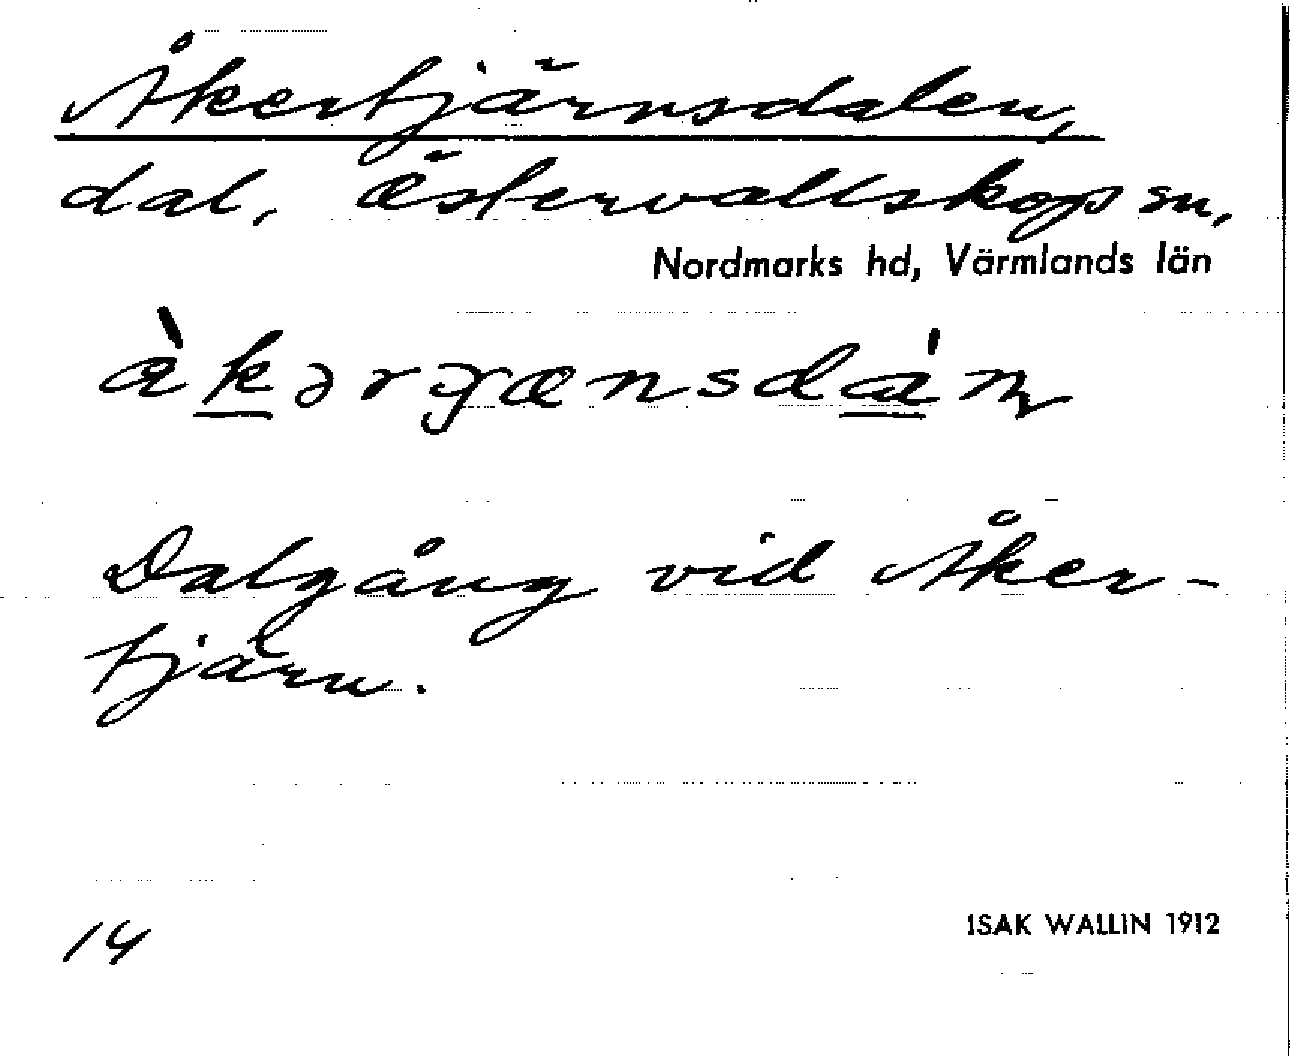 Åkertjärnsdalen,
dal, Östervallskogs sn,
Nordmarks hd, Värmlands län
Dalgång vid Åker-
tjärn.
14
ISAK WALLIN 1912